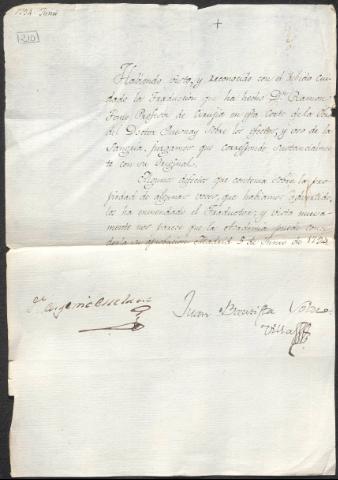 1794 Junio
210
+
Habiendo visto, y reconocido con el debido cui-
dado la Traduccion que ha hecho Dn. Ramon
Profesor de Cirugia en esta Corte de la
del Doctor Quesnay sobre los efectos, y uso de la
Sangria, juzgamos que corresponde sustancialmen-
te con su Original.
Algunos defectos que contenia sobre la pro-
piedad de algunas voces, que habiamos advertido,
los ha enmendado el Traductor; y visto nueva-
mente nos parece que la Academia puede con-
cederla su aprobacion. Madrid 5 de Junio de 1794.
Dn. Eugenio Escolano
Juan Bautista